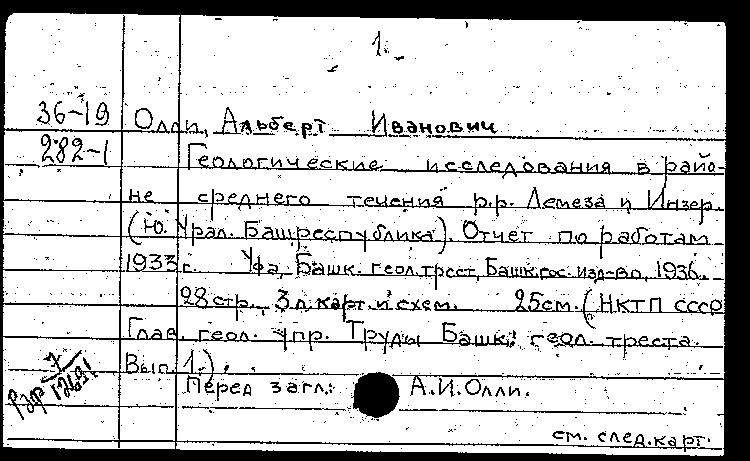 1.
36-19 Олли, Альберт Иванович
282-1 Геологические исследования в райо-
не среднего течения р.р. Лемеза и Инзер.
(Ю. Урал. Башреспублика). Отчет по работам
1933 г. Уфа, Башк. геол. трест, Башк. гос. изд-во, 1936.
28 стр., 3 л. карт. и схем. 25 см. (НКТП СССР
Глав. геол. упр. Труды Башк. геол. треста.
Вып. 1.).
Перед загл.: А.И. Олли.
см. след. карт.